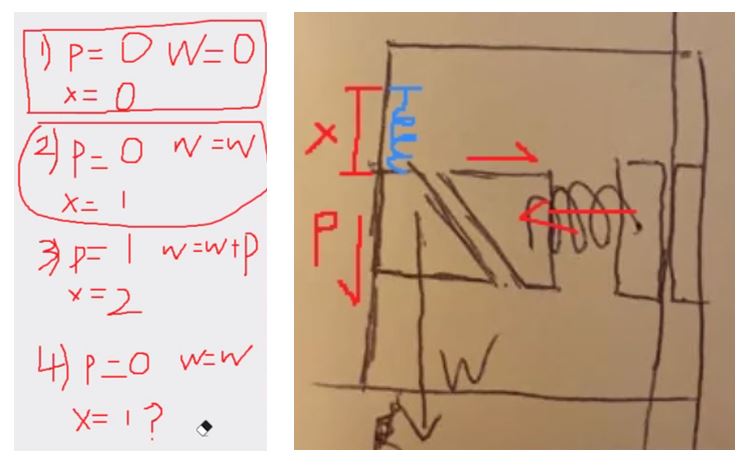 1) P= 0 W= 0
x= 0
2) P= 0 W=W
x= 1
3) P= 1 W=W+P
x=2
4) P=0 W=W
x= 1?
x
P
W